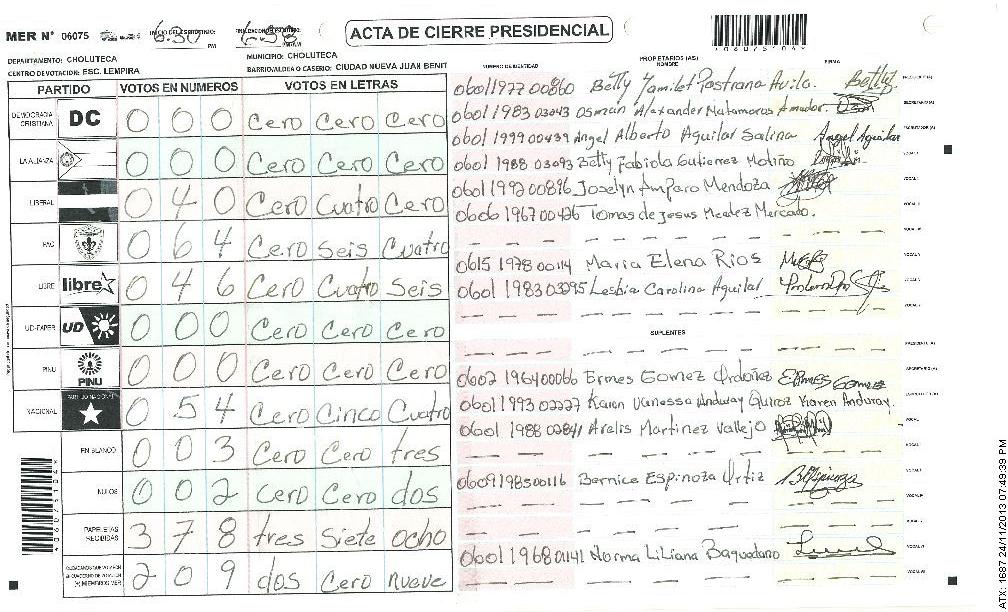 MER N° 06075
INICIO DEL ESCRUTINIO: 6:30 PM
6:38
ACTA DE CIERRE PRESIDENCIAL
DEPARTAMENTO: CHOLUTECA
MUNICIPIO: CHOLUTECA
CENTRO DE VOTACION: ESC. LEMPIRA
BARRIO/ALDEA O CASERIO: CIUDAD NUEVA JUAN BENIT
PARTIDO VOTOS EN NUMEROS VOTOS EN LETRAS
DEMOCRACIA CRISTIANA DC 0 0 0 Cero Cero Cero
LA ALIANZA 0 0 0 Cero Cero Cero
LIBERAL 0 4 0 Cero Cuatro Cero
PAC 0 6 4 Cero Seis Cuatro
LIBRE libre 0 4 6 Cero Cuatro Seis
UD-FAPER UD 0 0 0 Cero Cero Cero
PINU PINU 0 0 0 Cero Cero Cero
NACIONAL PARTIDO NACIONAL 0 5 4 Cero Cinco Cuatro
EN BLANCO 0 0 3 Cero Cero tres
NULOS 0 0 2 Cero Cero dos
PAPELETAS RECIBIDAS 3 7 8 tres Siete ocho
2 0 9 dos Cero nueve
PROPIETARIOS (AS)
NUMERO DE IDENTIDAD NOMBRE FIRMA
0601 1977 00860 Betty Yamilet Pastrana Avila. Betty
0601 1983 03043 Osman Alexander Matamoros Amador.
0601 1999 00439 Angel Alberto Aguilar Salina Angel Aguilar
0601 1988 03093 Betty Fabiola Gutierrez Moliño
0601 1992 00896 Joselyn Amparo Mendoza
0606 1967 00426 Tomas de Jesus Mendez Mercado.
0615 1978 00114 Maria Elena Rios
0601 1983 03295 Lesbia Carolina Aguilar
SUPLENTES
0602 1964 00066 Ermes Gomez Ordoñez Ermes Gomez
0601 1993 02227 Karen Vanessa Anduray Quiroz Karen Anduray.
0601 1988 02841 Arelis Martinez Vallejo
0609 1985 00116 Bernice Espinoza Ortiz BEspinoza
0601 1968 01141 Norma Liliana Baquedano
ATX: 1687 24/11/2013 07:49:39 PM